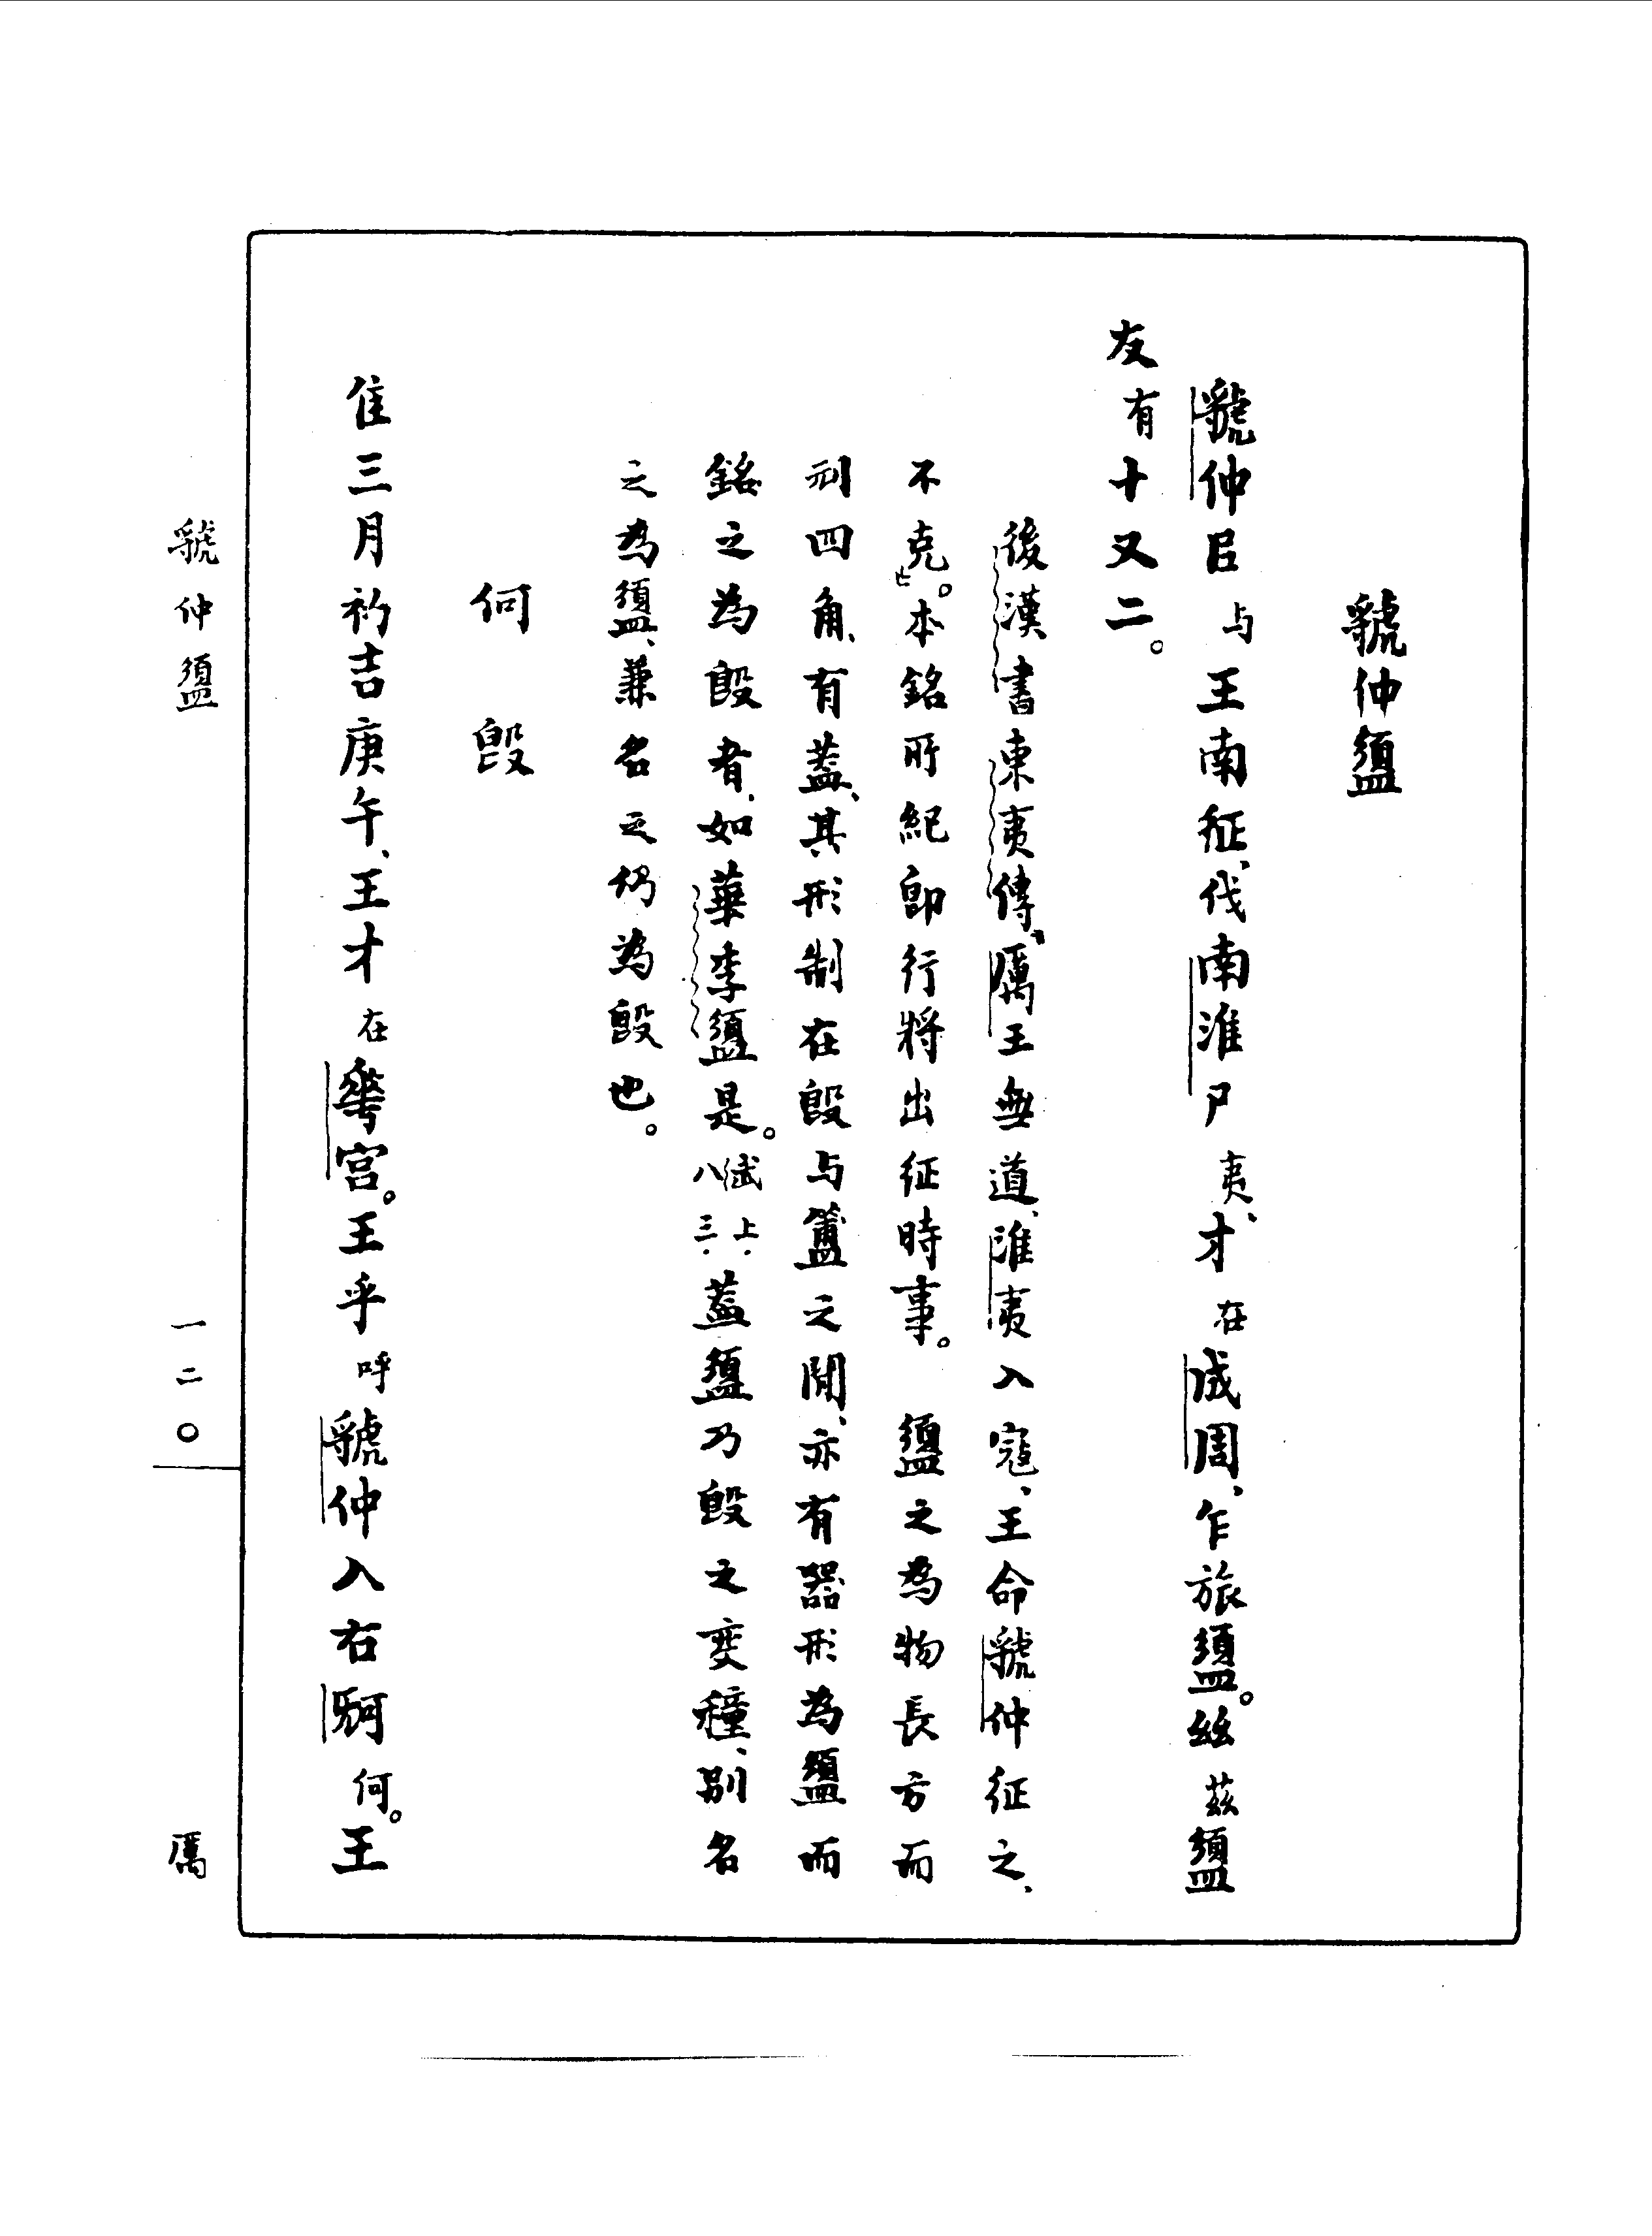 虢仲盨
虢仲㠯与王南征、伐南淮尸夷、才在成周、乍旅盨。𢆶兹盨
友有十又二。
後漢書東夷傳、厲王無道、淮夷入寇、王命虢仲征之、
不克。本銘所紀即行將出征時事。 盨之為物長方而
刓四角、有蓋、其形制在𣪘与簠之間、亦有器形為盨而
銘之為𣪘者、如華季盨是。武上·八三·蓋盨乃𣪘之变種、别名
之為盨、兼名之仍為𣪘也。
何𣪘
隹三月初吉庚午、王才在華宮。王乎呼虢仲入右𣄰何。王
虢仲盨
一二〇
厲